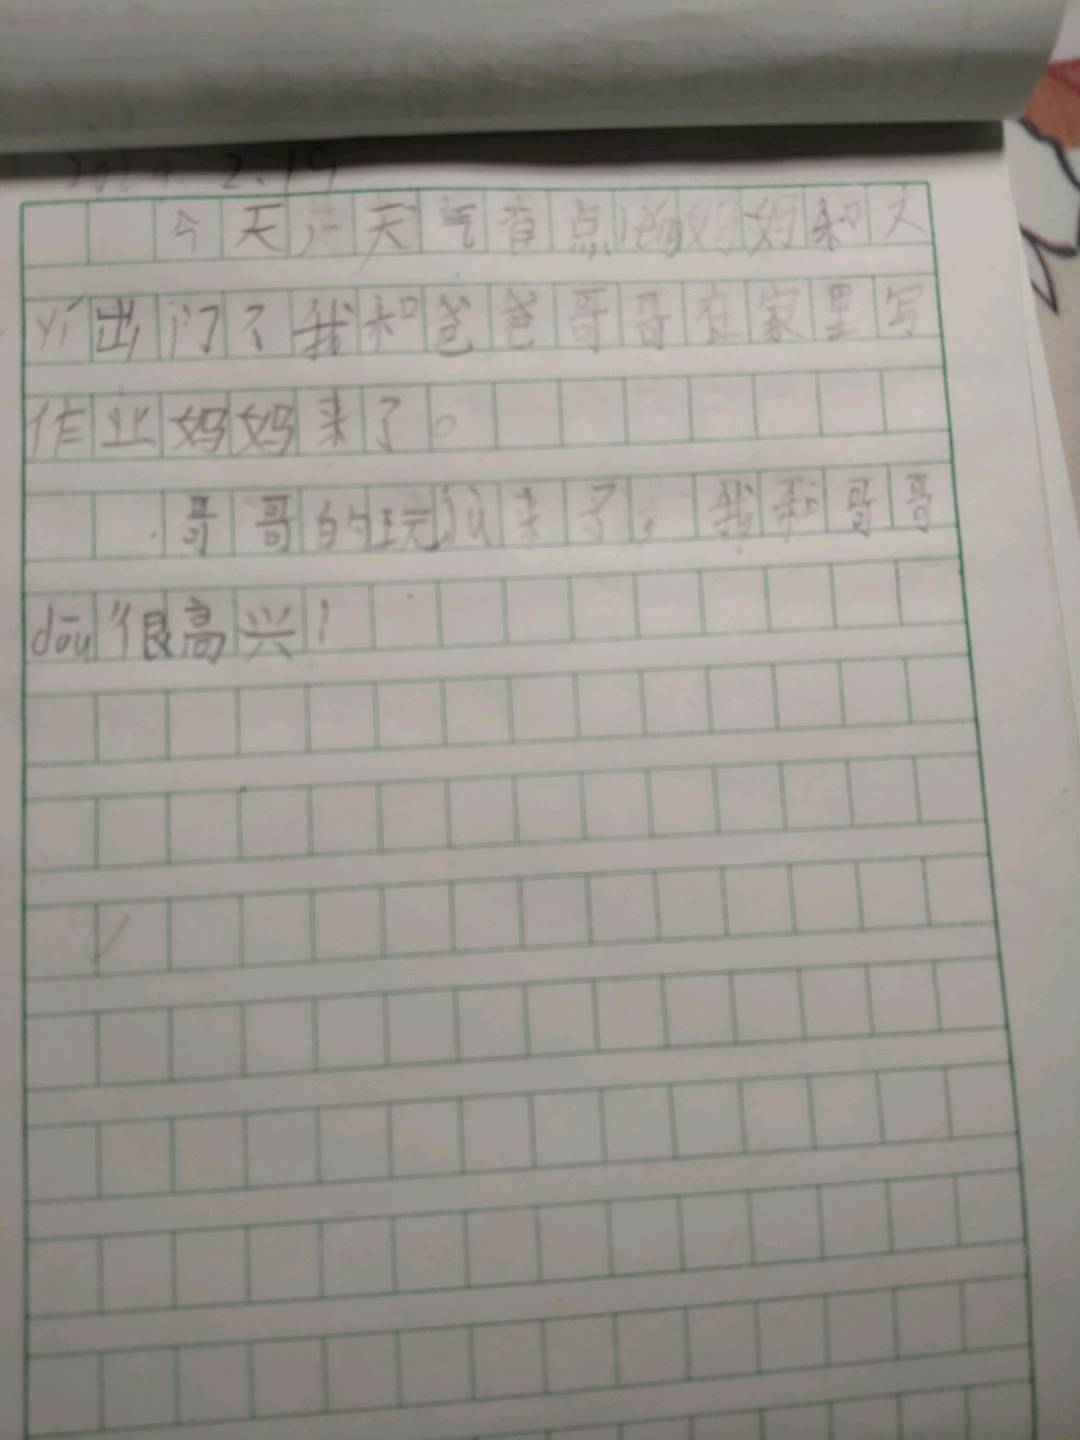 2.19
今天天气有点 妈妈和大
yí出门了我和爸爸哥哥在家里写
作业妈妈来了。
哥哥的玩jù来了，我和哥哥
dōu很高兴！